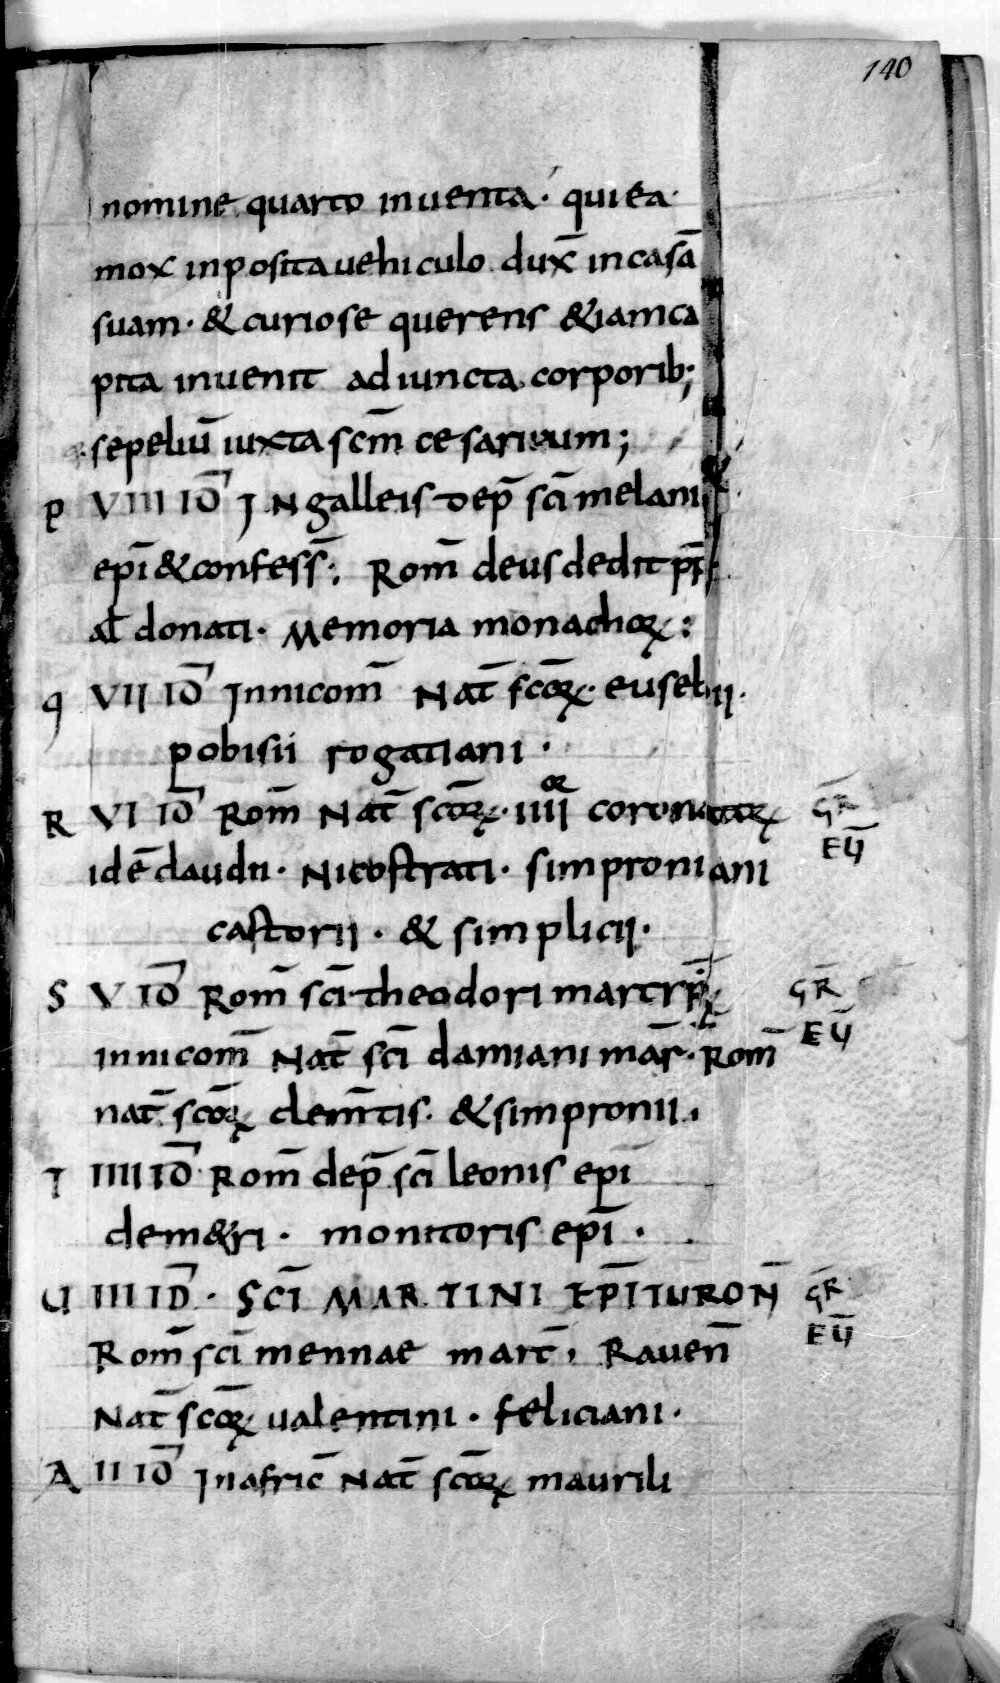 140
nomine quarto inuenta · qui ea
mox inposita uehiculo dux̄ in casā
suam · & curiose querens & iam ca
pita inuenit ad iuncta corporib;
sepeliū iuxta scm̄ cesarium ;
P VIIII ID̄ IN galleis dep̄ scī melani
epī & confess̄ ; Rom̄ deus dedit pr̄
al̄ donati · Memoria monachoꝝ :
q VII ID̄ In nicom̄ Nat̄ scōꝝ · eusebii ·
pobisii rogatiani ·
R VI ID̄ Rom̄ Nat̄ scōꝝ · IIII or coronatoꝝ GR̄
idē claudii · Nicostrati · simproniani EŪ
castorii · & simplicii ·
S V ID̄ Rom̄ scī theodori martyr̄ GR̄
in nicom̄ Nat̄ scī damiani mar̄ · Rom̄ EŪ
nat̄ scōꝝ clem̄tis · & simpronii ·
T IIII ID̄ Rom̄ dep̄ scī leonis epī
dem&ri · monitoris epī ·
U III ID̄ · SCĪ MARTINI EP̄I TURON̄ GR̄
Rom̄ scī mennae mart̄ · Raven̄ EŪ
Nat̄ scōꝝ ualentini · feliciani ·
A II ID̄ In afric̄ Nat̄ scōꝝ maurili